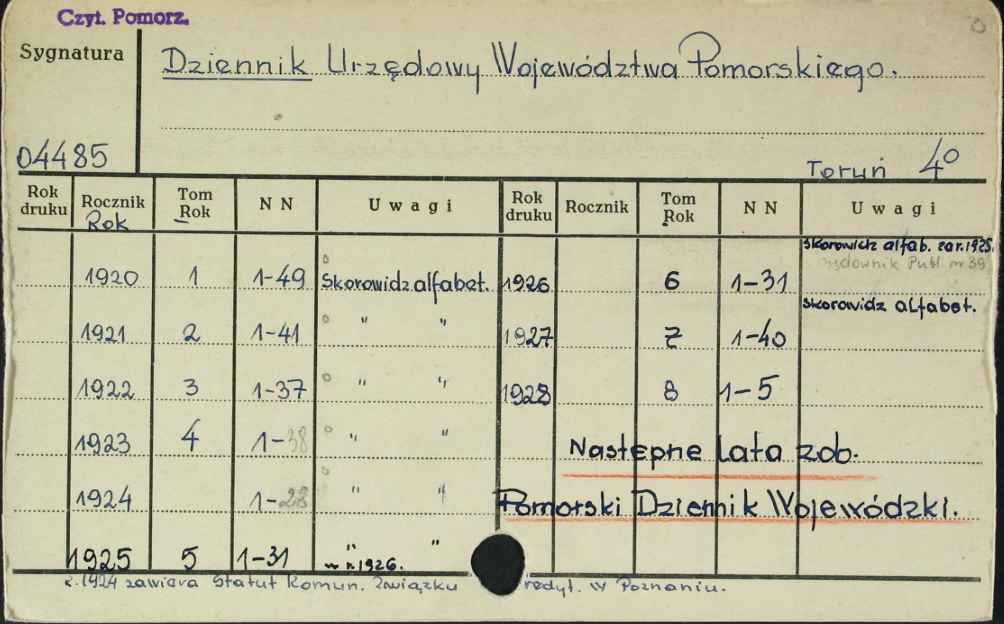 Czyt. Pomorz.
Sygnatura
Dziennik Urzędowy Województwa Pomorskiego.
04485
Toruń 4º
Rok druku Rocznik Rok Tom Rok NN Uwagi Rok druku Rocznik Tom Rok NN Uwagi
Skorowidz alfab. za r. 1925.
Publ. nr 39
1920 1 1-49 Skorowidz alfabet. 1926 6 1-31
Skorowidz alfabet.
1921 2 1-41 " " 1927 7 1-40
1922 3 1-37 " " 1928 8 1-5
1923 4 1-38 " " Następne lata zob.
1924 1-28 " " Pomorski Dziennik Wojewódzki.
1925 5 1-31 " "
w r. 1926.
r. 1924 zawiera Statut Komun. Związku redyt. w Poznaniu.